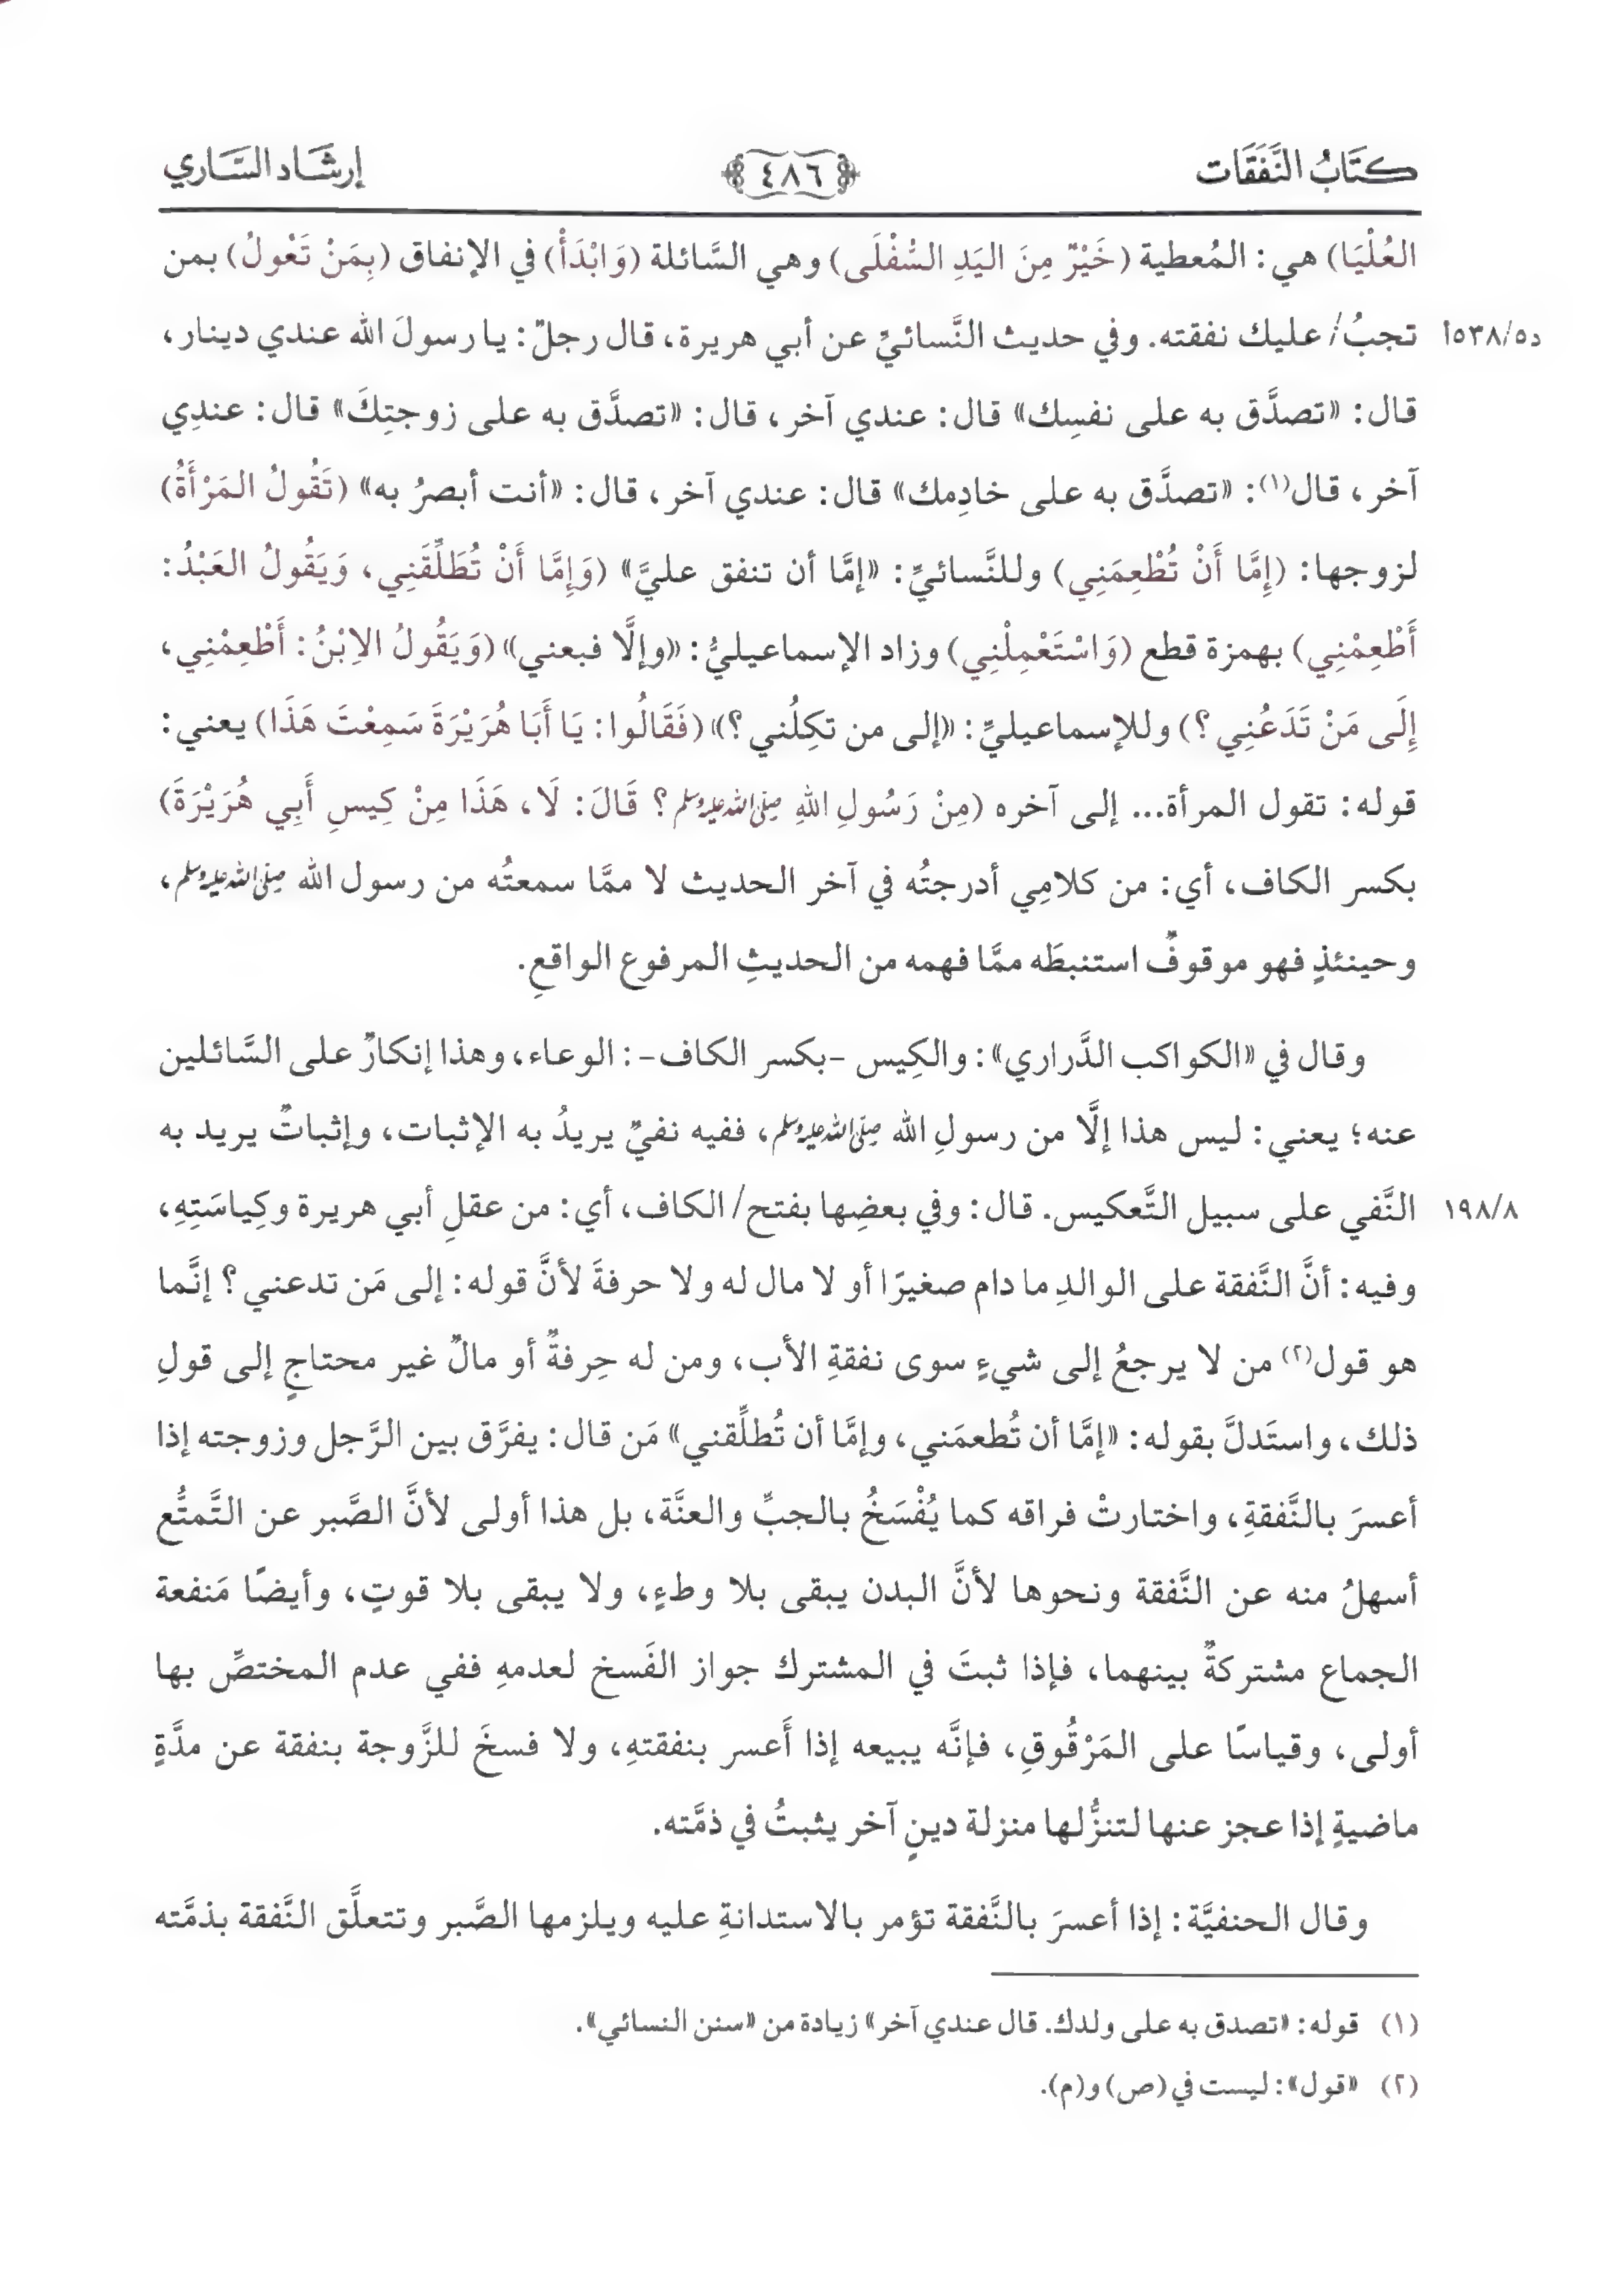 كتَابُ النَّفَقَات ٤٨٦ إرشَاد السَّاري
العُلْيَا) هي: المُعطية (خَيْرٌ مِنَ اليَدِ السُّفْلَى) وهي السَّائلة (وَابْدَأْ) في الإنفاق (بِمَنْ تَعُولُ) بمن
تجبُ/ عليك نفقته. وفي حديث النَّسائيِّ عن أبي هريرة، قال رجلٌ: يا رسولَ الله عندي دينار، د٥/٥٣٨أ
قال: «تصدَّق به على نفسِك» قال: عندي آخر، قال: «تصدَّق به على زوجتِكَ» قال: عندِي
آخر، قال(١): «تصدَّق به على خادِمك» قال: عندي آخر، قال: «أنت أبصرُ به» (تَقُولُ المَرْأَةُ)
لزوجها: (إِمَّا أَنْ تُطْعِمَنِي) وللنَّسائيِّ: «إمَّا أن تنفق عليَّ» (وَإِمَّا أَنْ تُطَلِّقَنِي، وَيَقُولُ العَبْدُ:
أَطْعِمْنِي) بهمزة قطع (وَاسْتَعْمِلْنِي) وزاد الإسماعيليُّ: «وإلَّا فبعني» (وَيَقُولُ الاِبْنُ: أَطْعِمْنِي،
إِلَى مَنْ تَدَعُنِي؟) وللإسماعيليِّ: «إلى من تكِلُني؟» (فَقَالُوا: يَا أَبَا هُرَيْرَةَ سَمِعْتَ هَذَا) يعني:
قوله: تقول المرأة... إلى آخره (مِنْ رَسُولِ اللهِ صلى الله عليه وسلم؟ قَالَ: لَا، هَذَا مِنْ كِيسِ أَبِي هُرَيْرَةَ)
بكسر الكاف، أي: من كلامِي أدرجتُه في آخر الحديث لا ممَّا سمعتُه من رسول الله صلى الله عليه وسلم،
وحينئذٍ فهو موقوفٌ استنبطَه ممَّا فهمه من الحديثِ المرفوع الواقعِ.
وقال في «الكواكب الدَّراري»: والكِيس -بكسر الكاف-: الوعاء، وهذا إنكارٌ على السَّائلين
عنه؛ يعني: ليس هذا إلَّا من رسولِ الله صلى الله عليه وسلم، ففيه نفيٌ يريدُ به الإثبات، وإثباتٌ يريد به
النَّفي على سبيل التَّعكيس. قال: وفي بعضِها بفتح/ الكاف، أي: من عقلِ أبي هريرة وكِياسَتِهِ، ١٩٨/٨
وفيه: أنَّ النَّفقة على الوالدِ ما دام صغيرًا أو لا مال له ولا حرفةَ لأنَّ قوله: إلى مَن تدعني؟ إنَّما
هو قول(٢) من لا يرجعُ إلى شيءٍ سوى نفقةِ الأب، ومن له حِرفةٌ أو مالٌ غير محتاجٍ إلى قولِ
ذلك، واستَدلَّ بقوله: «إمَّا أن تُطعمَني، وإمَّا أن تُطلِّقني» مَن قال: يفرَّق بين الرَّجل وزوجته إذا
أعسرَ بالنَّفقةِ، واختارتْ فراقه كما يُفْسَخُ بالجبِّ والعنَّة، بل هذا أولى لأنَّ الصَّبر عن التَّمتُّع
أسهلُ منه عن النَّفقة ونحوها لأنَّ البدن يبقى بلا وطءٍ، ولا يبقى بلا قوتٍ، وأيضًا مَنفعة
الجماع مشتركةٌ بينهما، فإذا ثبتَ في المشترك جواز الفَسخ لعدمهِ ففي عدم المختصِّ بها
أولى، وقياسًا على المَرْقُوقِ، فإنَّه يبيعه إذا أَعسر بنفقتهِ، ولا فسخَ للزَّوجة بنفقة عن مدَّةٍ
ماضيةٍ إذا عجز عنها لتنزُّلها منزلة دينٍ آخر يثبتُ في ذمَّته.
وقال الحنفيَّة: إذا أعسرَ بالنَّفقة تؤمر بالاستدانةِ عليه ويلزمها الصَّبر وتتعلَّق النَّفقة بذمَّته
(١) قوله: «تصدق به على ولدك. قال عندي آخر» زيادة من «سنن النسائي».
(٢) «قول»: ليست في (ص) و(م).